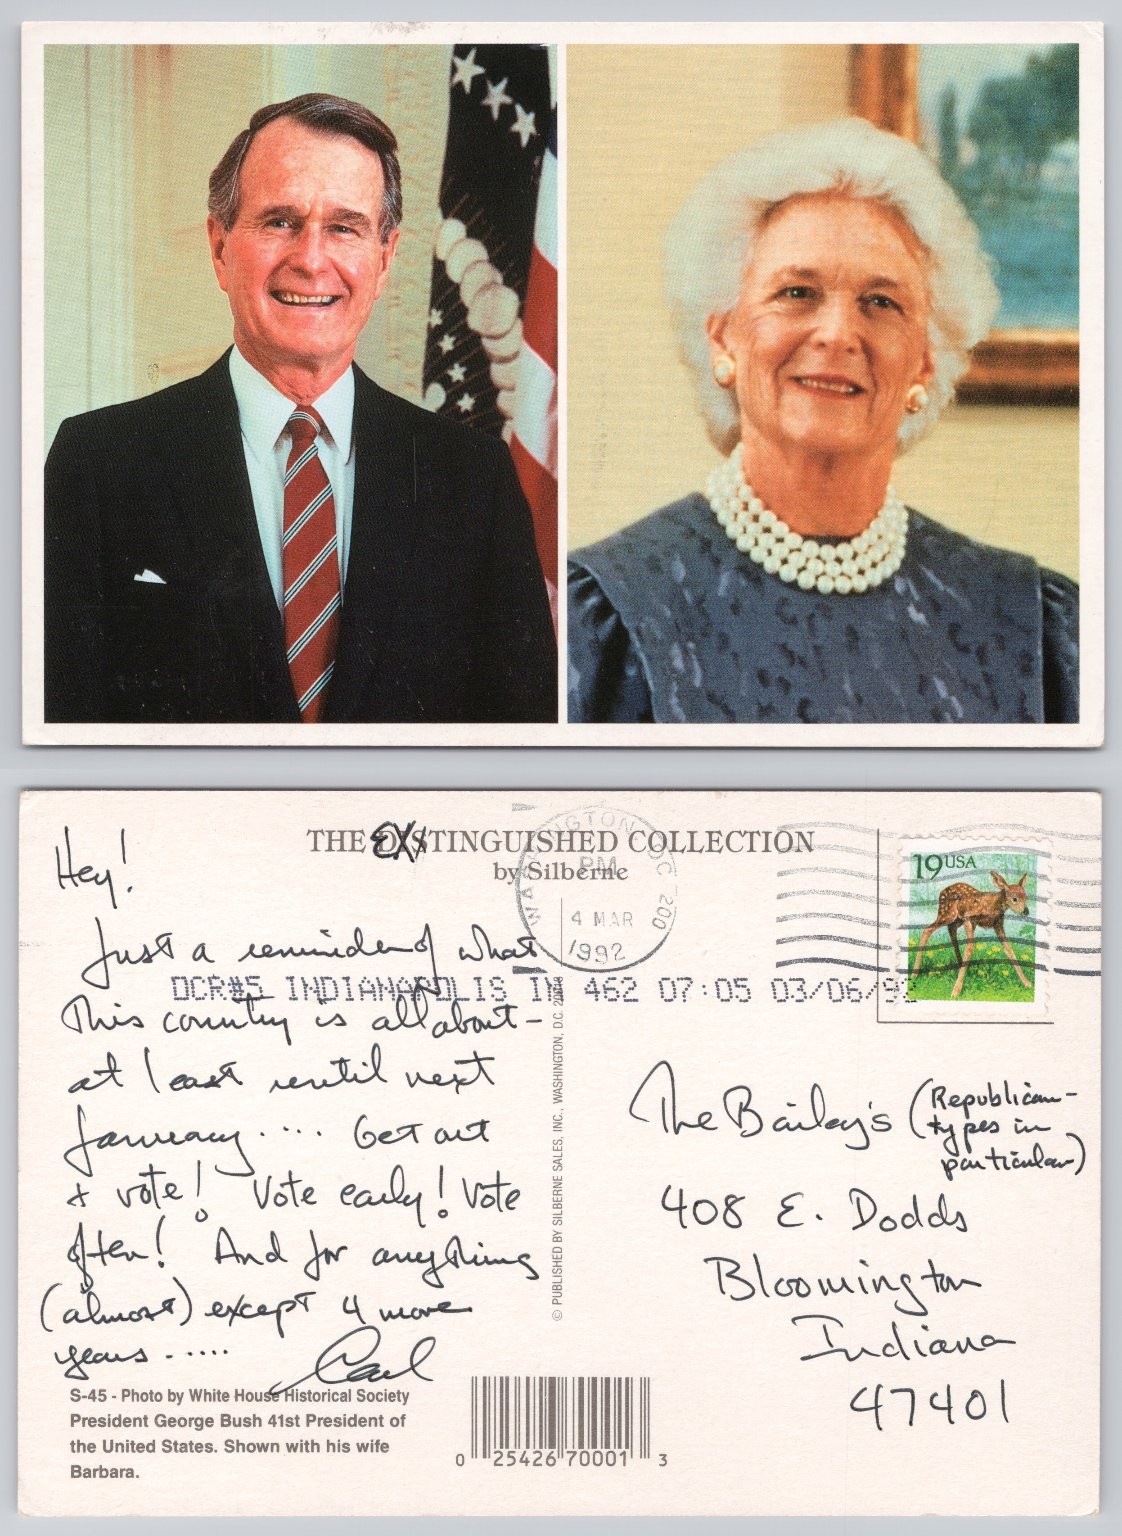 Hey!
THE EXTINGUISHED COLLECTION
by Silberne
WASHINGTON, DC 200
PM
4 MAR
1992
19 USA
Just a reminder of what
DCR#5 INDIANAPOLIS IN 462 07:05 03/06/92
This country is all about -
at least until next
January .... Get out
& vote! Vote early! Vote
often! And for anything
(almost) except 4 more
years .....
Carl
© PUBLISHED BY SILBERNE SALES, INC., WASHINGTON, D.C.
The Bailey's (Republican-
types in
particular)
408 E. Dodds
Bloomington
Indiana
47401
S-45 - Photo by White House Historical Society
President George Bush 41st President of
the United States. Shown with his wife
Barbara.
0 25426 70001 3